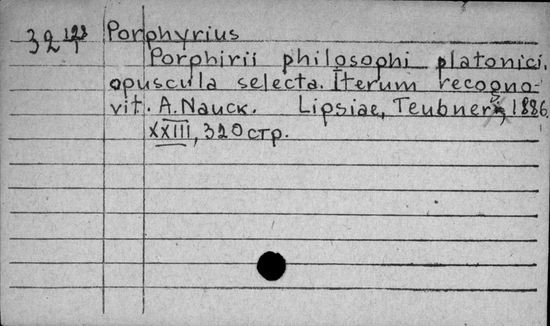 Porphyrius
Porphirii philosophi platonici.
opuscula selecta. Iterum recogno-
vit. A. Nauck. Lipsiae, Teubner, 1886.
XXIII, 320 стр.